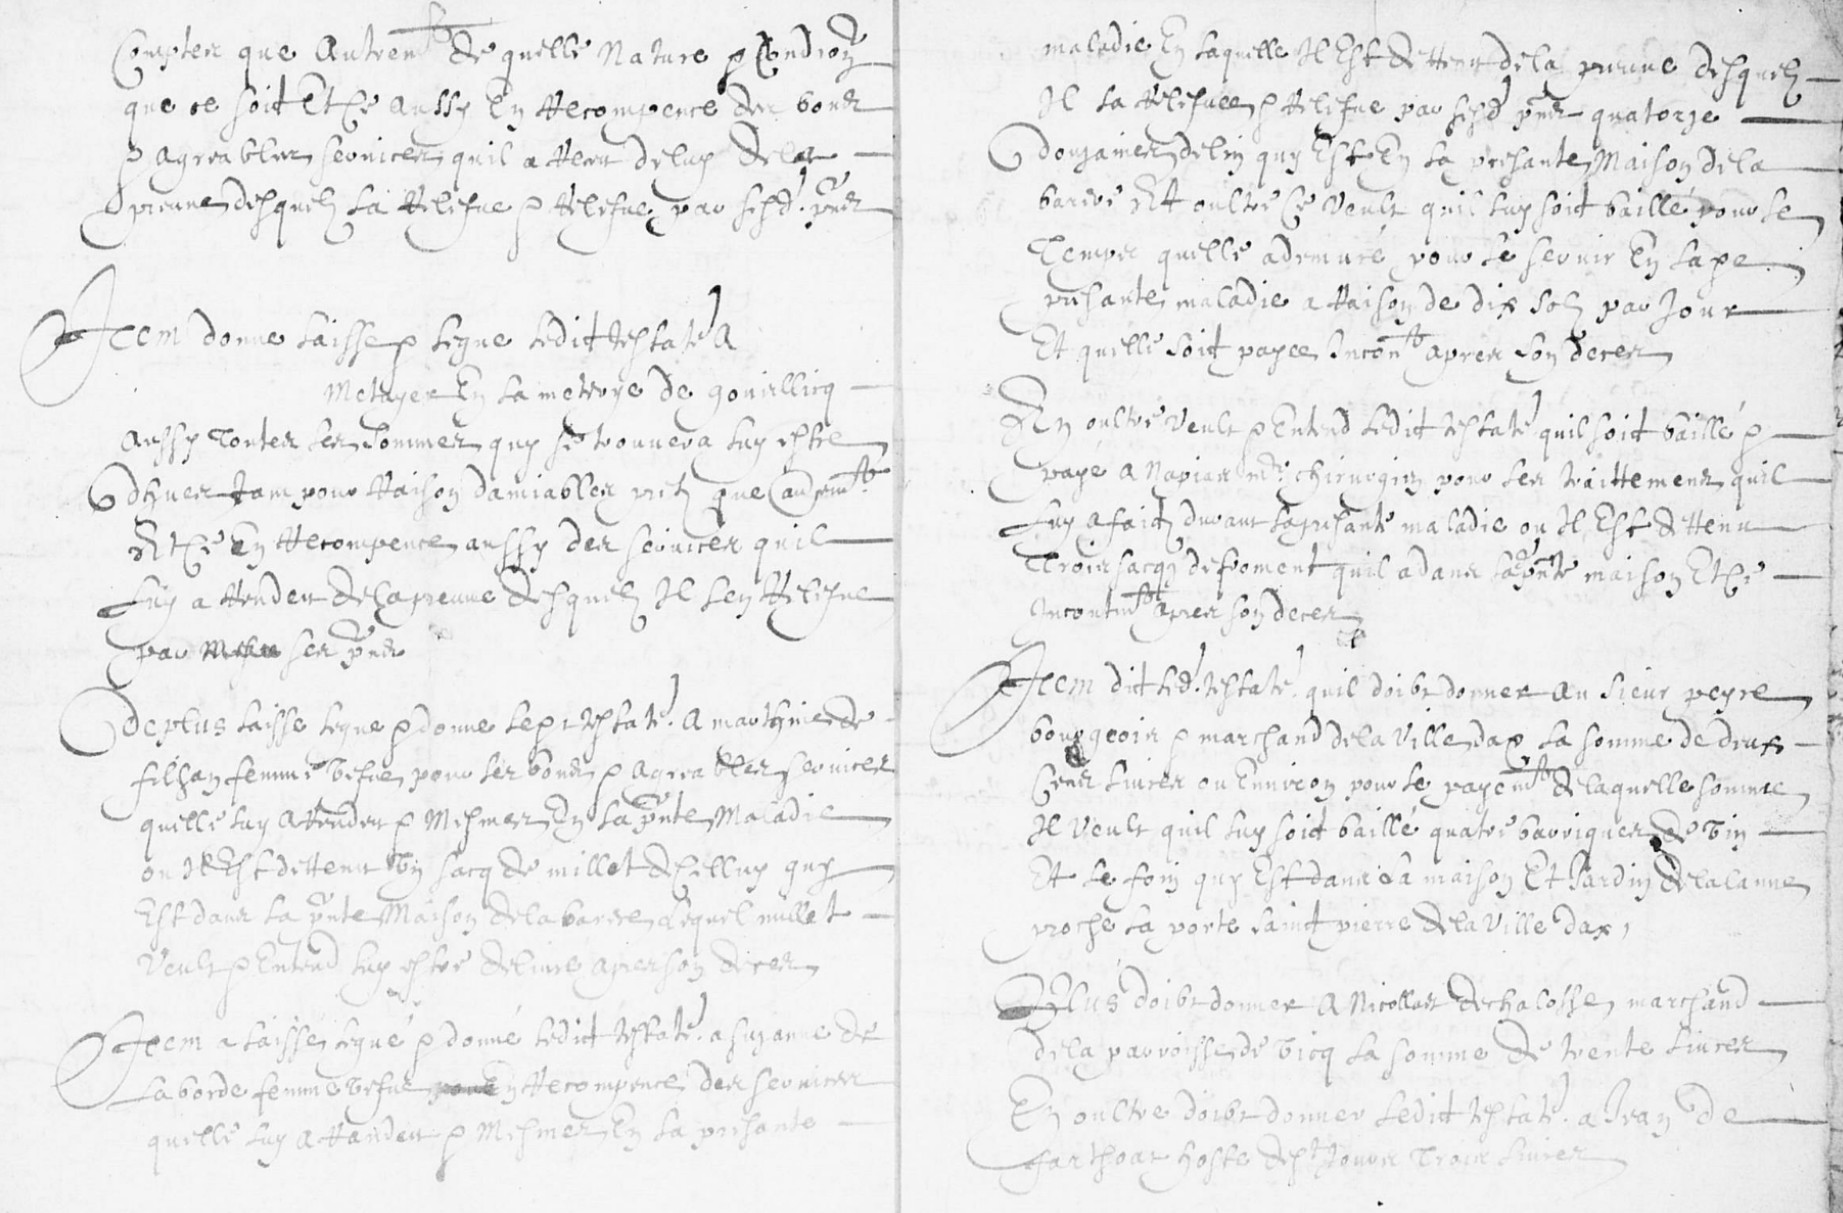 Compter que Autrem.t de quelle Nature & Condiõn
que ce soit Et Ce aussy En Recompence des bons
& agreables services quil a Receu deluy dela
preuve desquelz La Releve & Releve par sesd. pñs
Item donne Laisse & Legue Ledit testate.r A
Metayer En La meterye de
Aussy Toutes Les Sommes quy se trouvera Luy estre
dhues tam pour Raison damiables pretz que autrem.t
Et Ce En Recompence aussy des services quil
Luy a Rendeu dela preuve desquelz Il Len Releve
par ses pñs
De plus Laisse Legue & donne Le pt testate.r A marthine de
filhan femme vefve pour Les bons & agreables services
quelle Luy a Rendeu & Mesmes En La pñte Maladie
ou Il Est dettenu Un sacq de millet de Celluy quy
Est dans La pñte Maison de labarere Lequel millet
Veult & Entend Luy estre delivre apres son deces
Item a Laissé Legué & donné Ledict testate.r a suzanne de
Laborde femme vefve En Recompence des services
quelle Luy a Randeu & Mesmes En La presante
maladie En Laquelle Il Est dettenu dela preuve desquelz
Il La Relevee & Releve par sesd. pñs quatorze
douzaines de lin quy Est En La presante Maison dela
barere Et oultre Ce Veult quil Luy soit baillé pour Le
Temps quelle a demuré pour Le servir En La pe
presante maladie a Raison de dix solz par Jour
Et quelle soit payee Incon.t apres son deces
En oultre Veult & Entend Ledit testate.r quil soit baillé &
payé a Napias m.e chirurgien pour Les traittemens quil
Luy a faitz durant La presante maladie ou Il Est dettenu
Trois sacqz de froment quil a dans La pñte maison Et Ce
Incontin.t apres son deces
Item dict Led. testate.r quil doibt donner au sieur peyre
bourgeois & marchand dela Ville dax La somme de deux
Cens Livres ou Environ pour Le payem.t de laquelle somme
Il Veult quil Luy soit baillé quatre barriques de vin
Et Le foin quy Est dans La maison Et Jardin de lalanne
proche La porte Sainct pierre dela Ville dax,
Plus doibt donner A Nicollas dechalosse marchand
dela parroisse de vicq La somme de trente Livres
En oultre doibt donner Ledict testate.r a Jean de
farthoat hoste Trois Livres